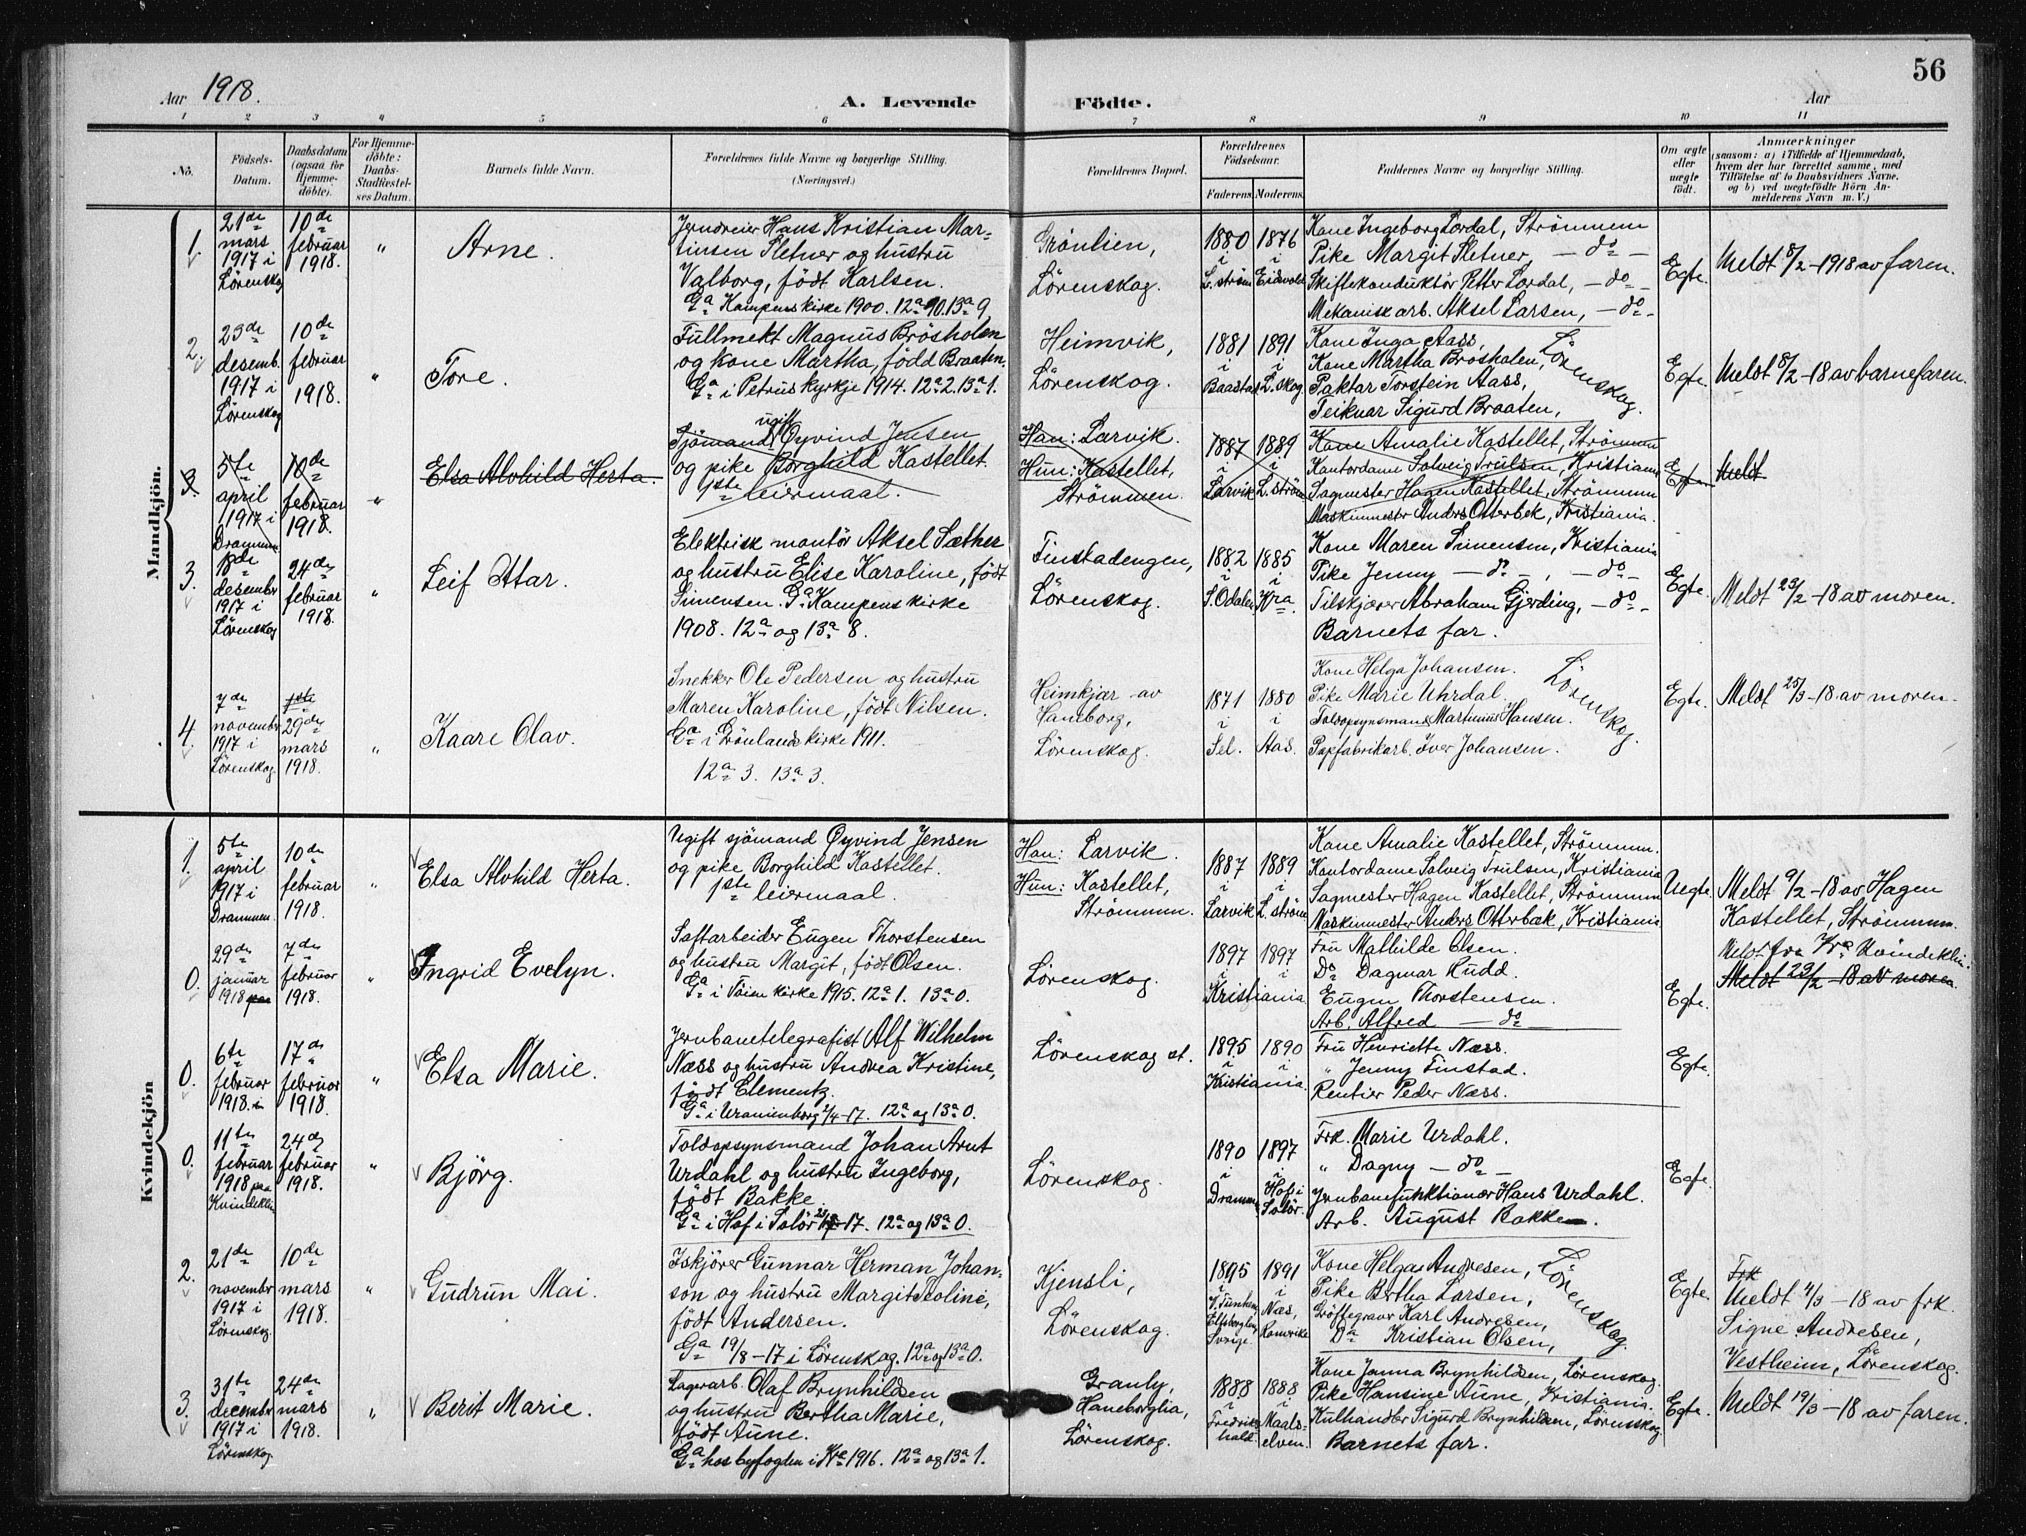 56
Aar 1918.
A. Levende Födte.
Aar
1 2 3 4 5 6 7 8 9 10 11
No.
Födsels-
Datum.
Daabsdatum
(ogsaa for
Hjemme-
döbte).
For Hjemme-
döbte:
Daabs-
Stadfæstel-
ses Datum.
Barnets fulde Navn.
Forældrenes fulde Navne og borgerlige Stilling.
(Næringsvei.)
Forældrenes Bopæl.
Forældrenes
Födselsaar.
Faderens Moderens
Faddernes Navne og borgerlige Stilling.
Om ægte
eller
uægte
født.
Anmærkninger
(saasom: a) i Tilfælde af Hjemmedaab,
hvem der har forrettet samme, med
Tilföielse af to Daabsvidners Navne,
og b) ved uegtefödte Börn An-
melderens Navn m. V.)
Mandkjön.
1.
21de
mars
1917 i
Lörenskog
10de
februar
1918.
"
Arne.
Jerndreier Hans Kristian Mar-
tinsen Sletner og hustru
Valborg, född Karlsen.
Ga Kampens kirke 1900. 12a 10. 13a 9.
Grönlien,
Lörenskog.
1880 1876
i i
L.ström Eidsvold
Kone Ingeborg Lordal, Strömmen
Pike Margit Sletner, — do —
Skiftekonduktör Petter Lordal, — do —
Mekanisk arb. Aksel Larsen, — do —
Egte.
Meldt 8/2 - 1918 av faren.
2.
23de
desemb.
1917 i
Lörenskog
10de
februar
1918.
"
Tore.
Fullmekt Magnus Brösholen
og kone Martha, född Braaten.
Ga i Petrus kyrkje 1914. 12a 2. 13a 1.
Heimvik,
Lörenskog.
1881 1891
i i
Baastad L.skog.
Kone Inga Aass,
Kone Martha Brosholen,
Paktar Torstein Aass,
Teiknar Sigurd Braaten,
Lörenskog.
Egte.
Meldt 8/2 - 18 av barnefaren.
3.
5te
april
1917 i
Drammen
10de
februar
1918.
"
Elsa Alvhild Herta.
ugift
Sjömand Öyvind Jensen
og pike Borghild Kastellet.
1ste leiermaal.
Han: Larvik.
Hun: Kastellet,
Strömmen.
1887 1889
i i
Larvik L.ström
Kone Amalie Kastellet, Strömmen
Kontordame Solveig Trulsen, Kristiania
Sagmester Hagen Kastellet, Strömmen
Maskinmester Anders Otterbek, Kristiania.
Egte
Meldt
3.
18de
desembr
1917 i
Lörenskog
24de
februar
1918.
"
Leif Ottar.
Elektrisk montör Aksel Sæther
og hustru Elise Karoline, född
Simensen. Ga Kampens kirke
1908. 12a og 13a 8.
Finstadengen,
Lörenskog.
1882 1885
i i
S.Odalen Kra.
Kone Maren Simensen, Kristiania
Pike Jenny — do —, — do —
Tilskjærer Abraham Gjerding, — do —
Barnets far.
Egte.
Meldt 23/2 - 18 av moren.
4.
7de
novembr
1917 i
Lörenskog
1ste
29de
mars
1918.
"
Kaare Olav.
Snekker Ole Pedersen og hustru
Maren Karoline, född Nilsen.
Ga i Grönlands kirke 1911.
12a 3. 13a 3.
Heimkjær av
Haneborg,
Lörenskog.
1871 1880
i i
Sel. Aas.
Kone Helga Johansen.
Pike Marie Uhrdal.
Toldopsynsmand Martinius Hansen.
Papfabrikarb. Iver Johansen.
Lörenskog
Egte.
Meldt 25/3 - 18 av moren.
Kvindekjön
1.
5te
april
1917 i
Drammen
10de
februar
1918.
"
Elsa Alvhild Herta.
Ugift sjömand Öyvind Jensen
og pike Borghild Kastellet.
1ste leiermaal.
Han: Larvik.
Hun: Kastellet,
Strömmen.
1887 1889
i i
Larvik L.ström
Kone Amalie Kastellet, Strömmen.
Kontordame Solveig Trulsen, Kristiania
Sagmester Hagen Kastellet, Strömmen
Maskinmester Anders Otterbæk, Kristiania
Uegte
Meldt 9/2 - 18 av Hagen
Kastellet, Strömmen.
0.
29de
januar
1918 paa
7de
februar
1918.
"
Ingrid Evelyn.
Saftarbeider Eugen Thorstensen
og hustru Margit, född Olsen.
Ga i Töien kirke 1915. 12a 1. 13a 0.
Lörenskog.
1897 1897
i i
Kristiania.
Fru Mathilde Olsen.
Do Dagmar Rudd.
Eugen Thorstensen.
Arb. Alfred — do —
Egte.
Meldt fra Kra Kvindeklin.
Meldt 23/2 - 18 av moren
0.
6te
februar
1918 i
17de
februar
1918.
"
Elsa Marie.
Jernbanetelegrafist Alf Wilhelm
Næss og hustru Andrea Kristine,
född Clementz.
Ga i Uranienborg 2/4 - 17. 12a og 13a 0.
Lörenskog st.
1895 1890
i i
Kristiania.
Fru Henriette Næss.
" Jenny Finstad.
Rentier Peder Næss.
Egte.
0.
11te
februar
1918 paa
Kvindeklin
24de
februar
1918.
"
Bjørg.
Toldopsynsmand Johan Arnt
Urdahl og hustru Ingeborg,
född Bakke.
Ga i Hof i Solör - 17. 12a og 13a 0.
Lörenskog.
1890 1897
i i
Drammen Hof i
Solör.
Frk. Marie Urdahl.
" Dagny — do —
Jernbanefunktionær Hans Urdahl.
Arb. August Bakken.
Egte.
2.
21de
novembr
1917 i
Lörenskog
10de
mars
1918.
"
Gudrun Mai.
Iskjörer Gunnar Herman Johan-
son og hustru Margit Teoline,
född Andersen.
Ga 19/8 - 17 i Lörenskog. 12a og 13a 0.
Kjensli,
Lörenskog.
1895 1891
i i
Elfsborg len Næs,
Sverige. Romerike
Kone Helga Andresen,
Pike Bertha Larsen,
Gröftegraver Karl Andresen,
Do Kristian Olsen,
Lörenskog.
Egte.
Frk
Meldt 4/3 - 18 av frk.
Signe Andresen,
Vestheim, Lörenskog.
3.
31te
decembr
1917 i
Lörenskog
24de
mars
1918.
"
Berit Marie.
Lagerarb. Olaf Brynhildsen
og hustru Bertha Marie,
född Aune.
Ga hos byfogden i Kra 1916. 12a og 13a 1.
Granly,
Haneborglia,
Lörenskog.
1888 1888
i i
Fredriks- Maals-
hald. elven.
Kone Janna Brynhildsen, Lörenskog.
Pike Hansine Aune, Kristiania.
Kulhandler Sigurd Brynhildsen, Lörenskog
Barnets far.
Egte.
Meldt 19/3 - 18 av faren.